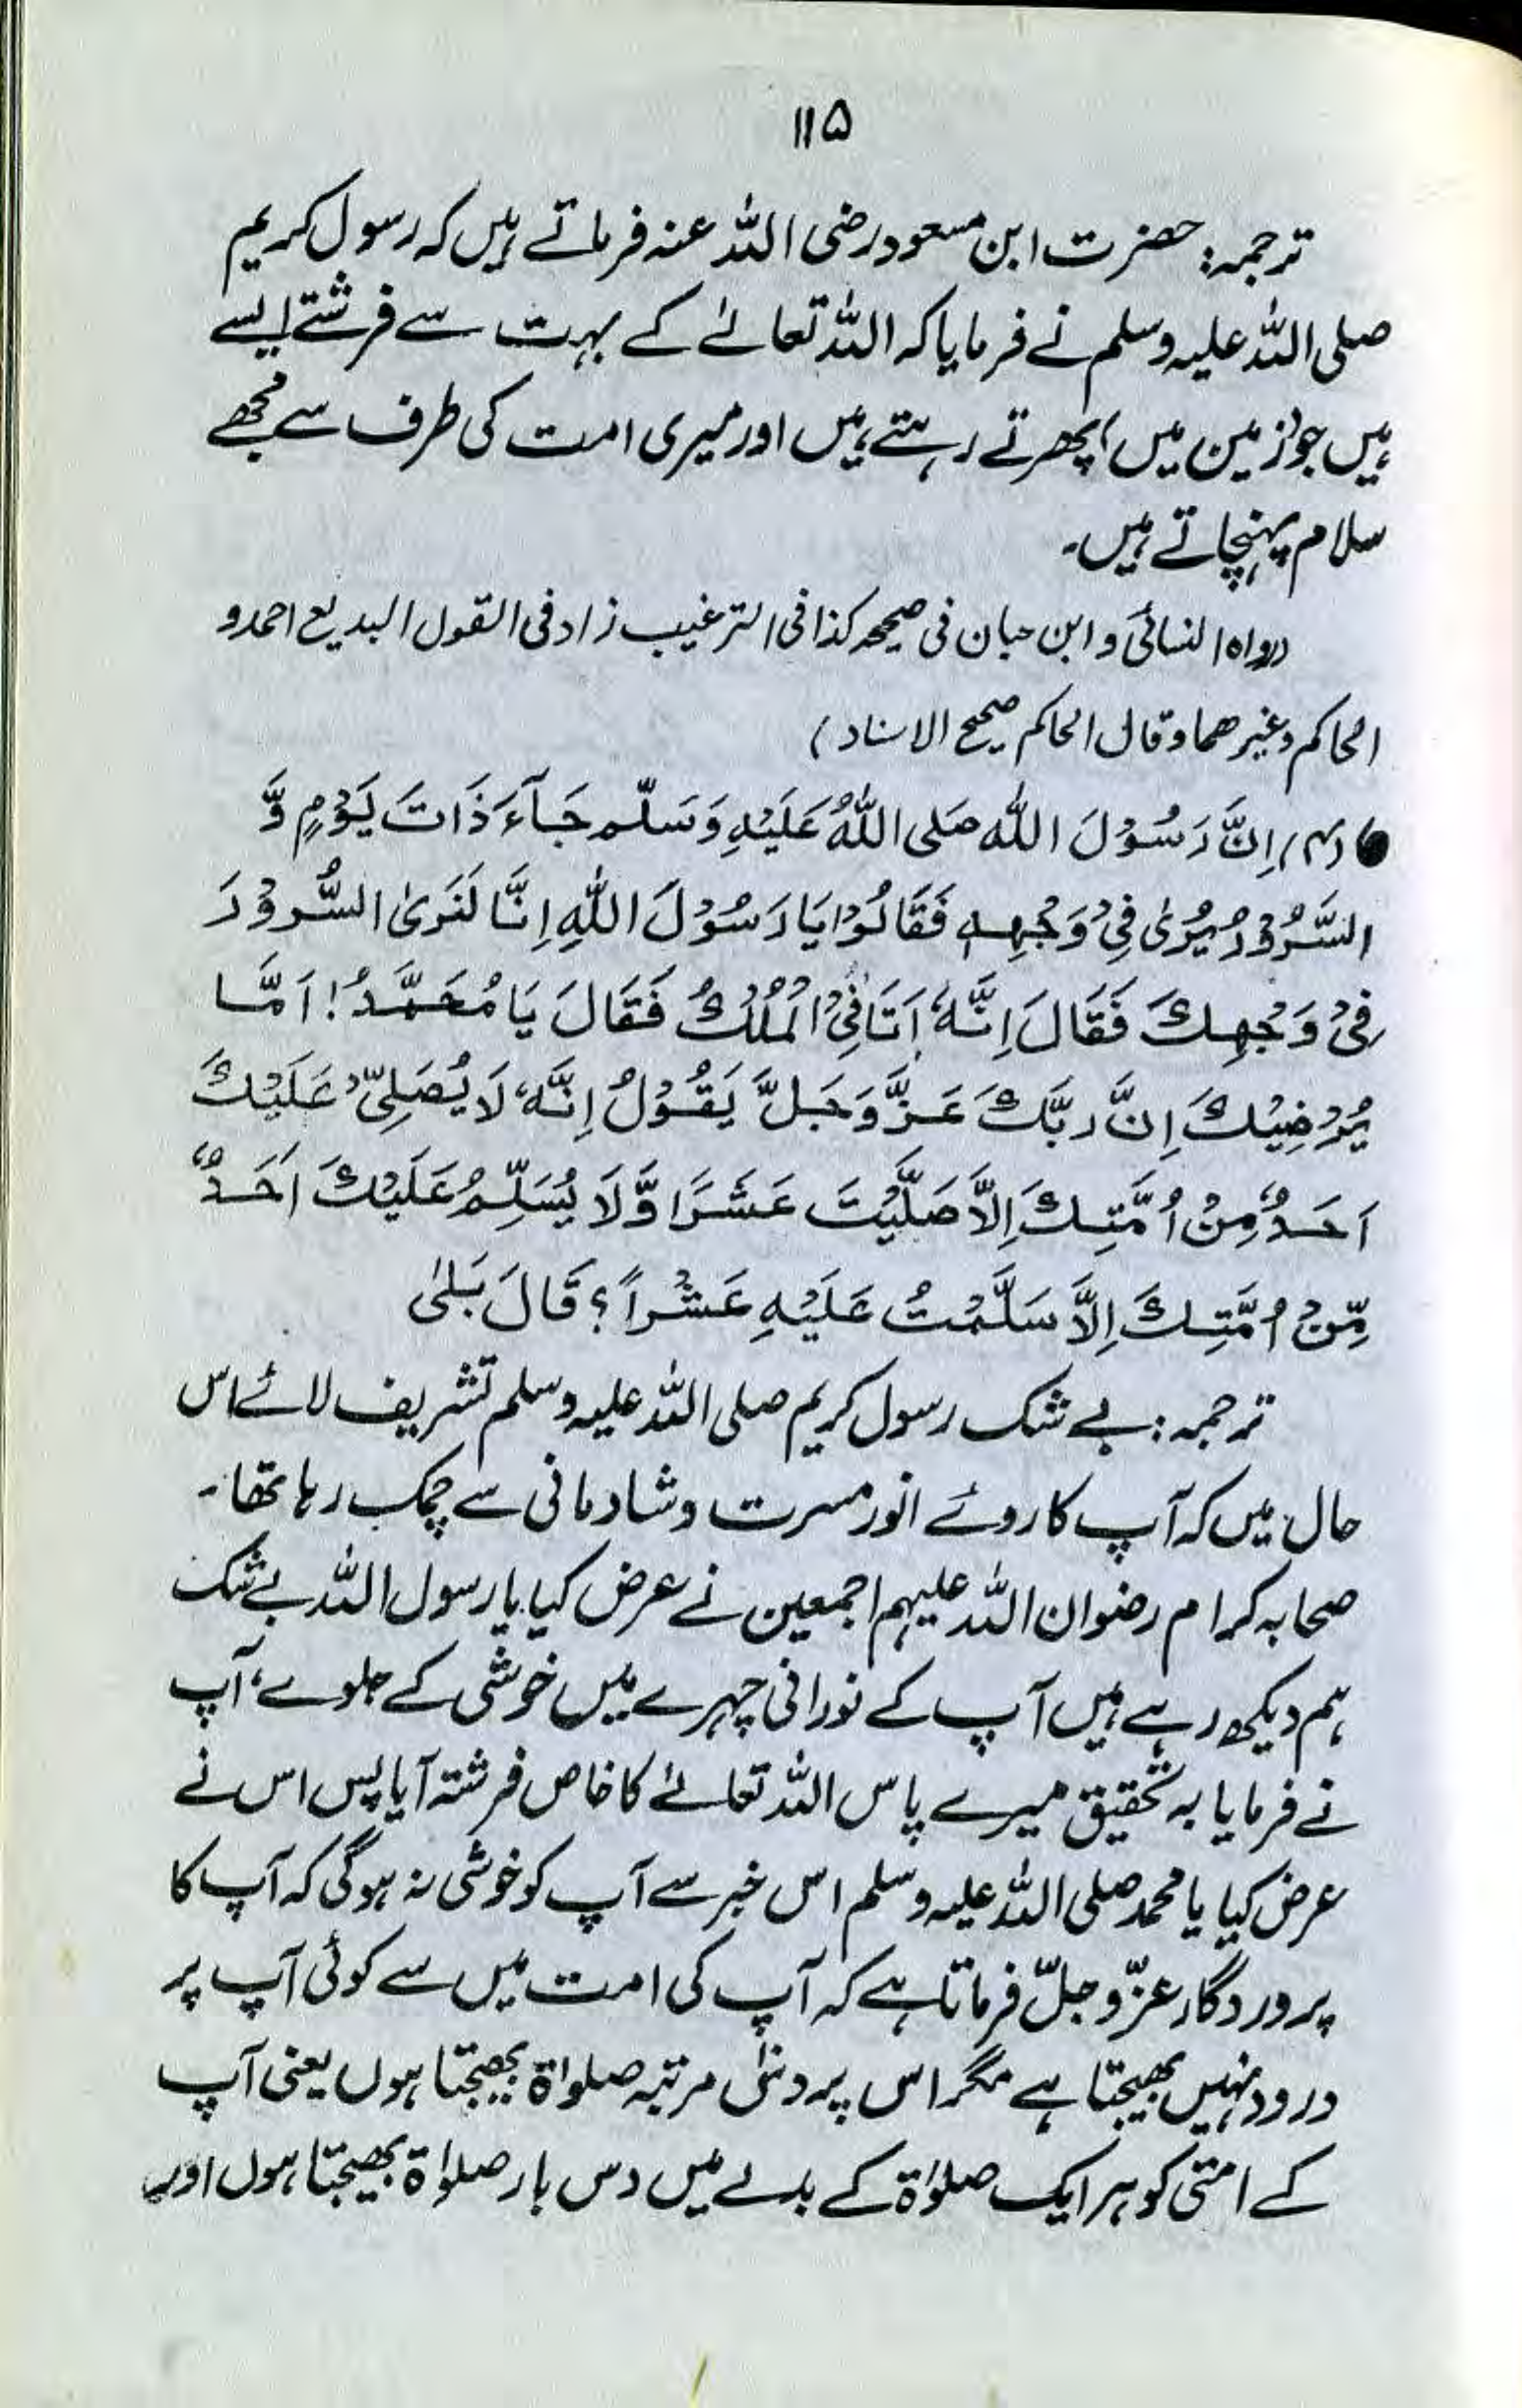 ۱۱۵
ترجمہ: حضرت ابن مسعود رضی اللہ عنہ فرماتے ہیں کہ رسول کریم
صلی اللہ علیہ وسلم نے فرمایا کہ اللہ تعالےٰ کے بہت سے فرشتے ایسے
ہیں جو (زمین میں) پھرتے رہتے ہیں اور میری امت کی طرف سے مجھے
سلام پہنچاتے ہیں۔
(رواہ النسائی و ابن حبان فی صحیحہ کذا فی الترغیب زاد فی القول البدیع احمد و
الحاکم وغیرھما وقال الحاکم صحیح الاسناد)
(۴) اِنَّ رَسُوْلَ اللہ صَلی اللہُ عَلَیْہِ وَسَلّم جَآءَ ذَاتَ یَوْمٍ وَّ
السَّرُوْرُ یُرٰی فِیْ وَجْہِہٖ فَقَالُوْا یَا رَسُوْلَ اللہِ اِنَّا لَنَرٰی السُّرُوْرَ
فِیْ وَجْہِکَ فَقَالَ اِنَّہٗ اَتَانِیْ الْمُلْکُ فَقَالَ یَا مُحَمَّدُ! اَمَّا
یُرْضِیْکَ اِنَّ رَبَّکَ عَزَّ وَجَلَّ یَقُوْلُ اِنَّہٗ لَا یُصَلِّیْ عَلَیْکَ
اَحَدٌ مِنْ اُمَّتِکَ اِلَّا صَلَّیْتَ عَشَرًا وَّلَا یُسَلِّمُ عَلَیْکَ اَحَدٌ
مِّنْ اُمَّتِکَ اِلَّا سَلَّمْتُ عَلَیْہِ عَشْراً؟ قَالَ بَلٰی
ترجمہ: بے شک رسول کریم صلی اللہ علیہ وسلم تشریف لائے اس
حال میں کہ آپ کا روئے انور مسرت و شادمانی سے چمک رہا تھا۔
صحابہ کرام رضوان اللہ علیہم اجمعین نے عرض کیا یا رسول اللہ بے شک
ہم دیکھ رہے ہیں آپ کے نورانی چہرے میں خوشی کے جلوے، آپ
نے فرمایا بہ تحقیق میرے پاس اللہ تعالےٰ کا خاص فرشتہ آیا پس اس نے
عرض کیا یا محمد صلی اللہ علیہ وسلم اس خبر سے آپ کو خوشی نہ ہوگی کہ آپ کا
پروردگار عزّ و جلّ فرماتا ہے کہ آپ کی امت میں سے کوئی آپ پر
درود نہیں بھیجتا ہے مگر اس پر دس مرتبہ صلوٰۃ بھیجتا ہوں یعنی آپ
کے امتی کو ہر ایک صلوٰۃ کے بدلے میں دس بار صلوٰۃ بھیجتا ہوں اور